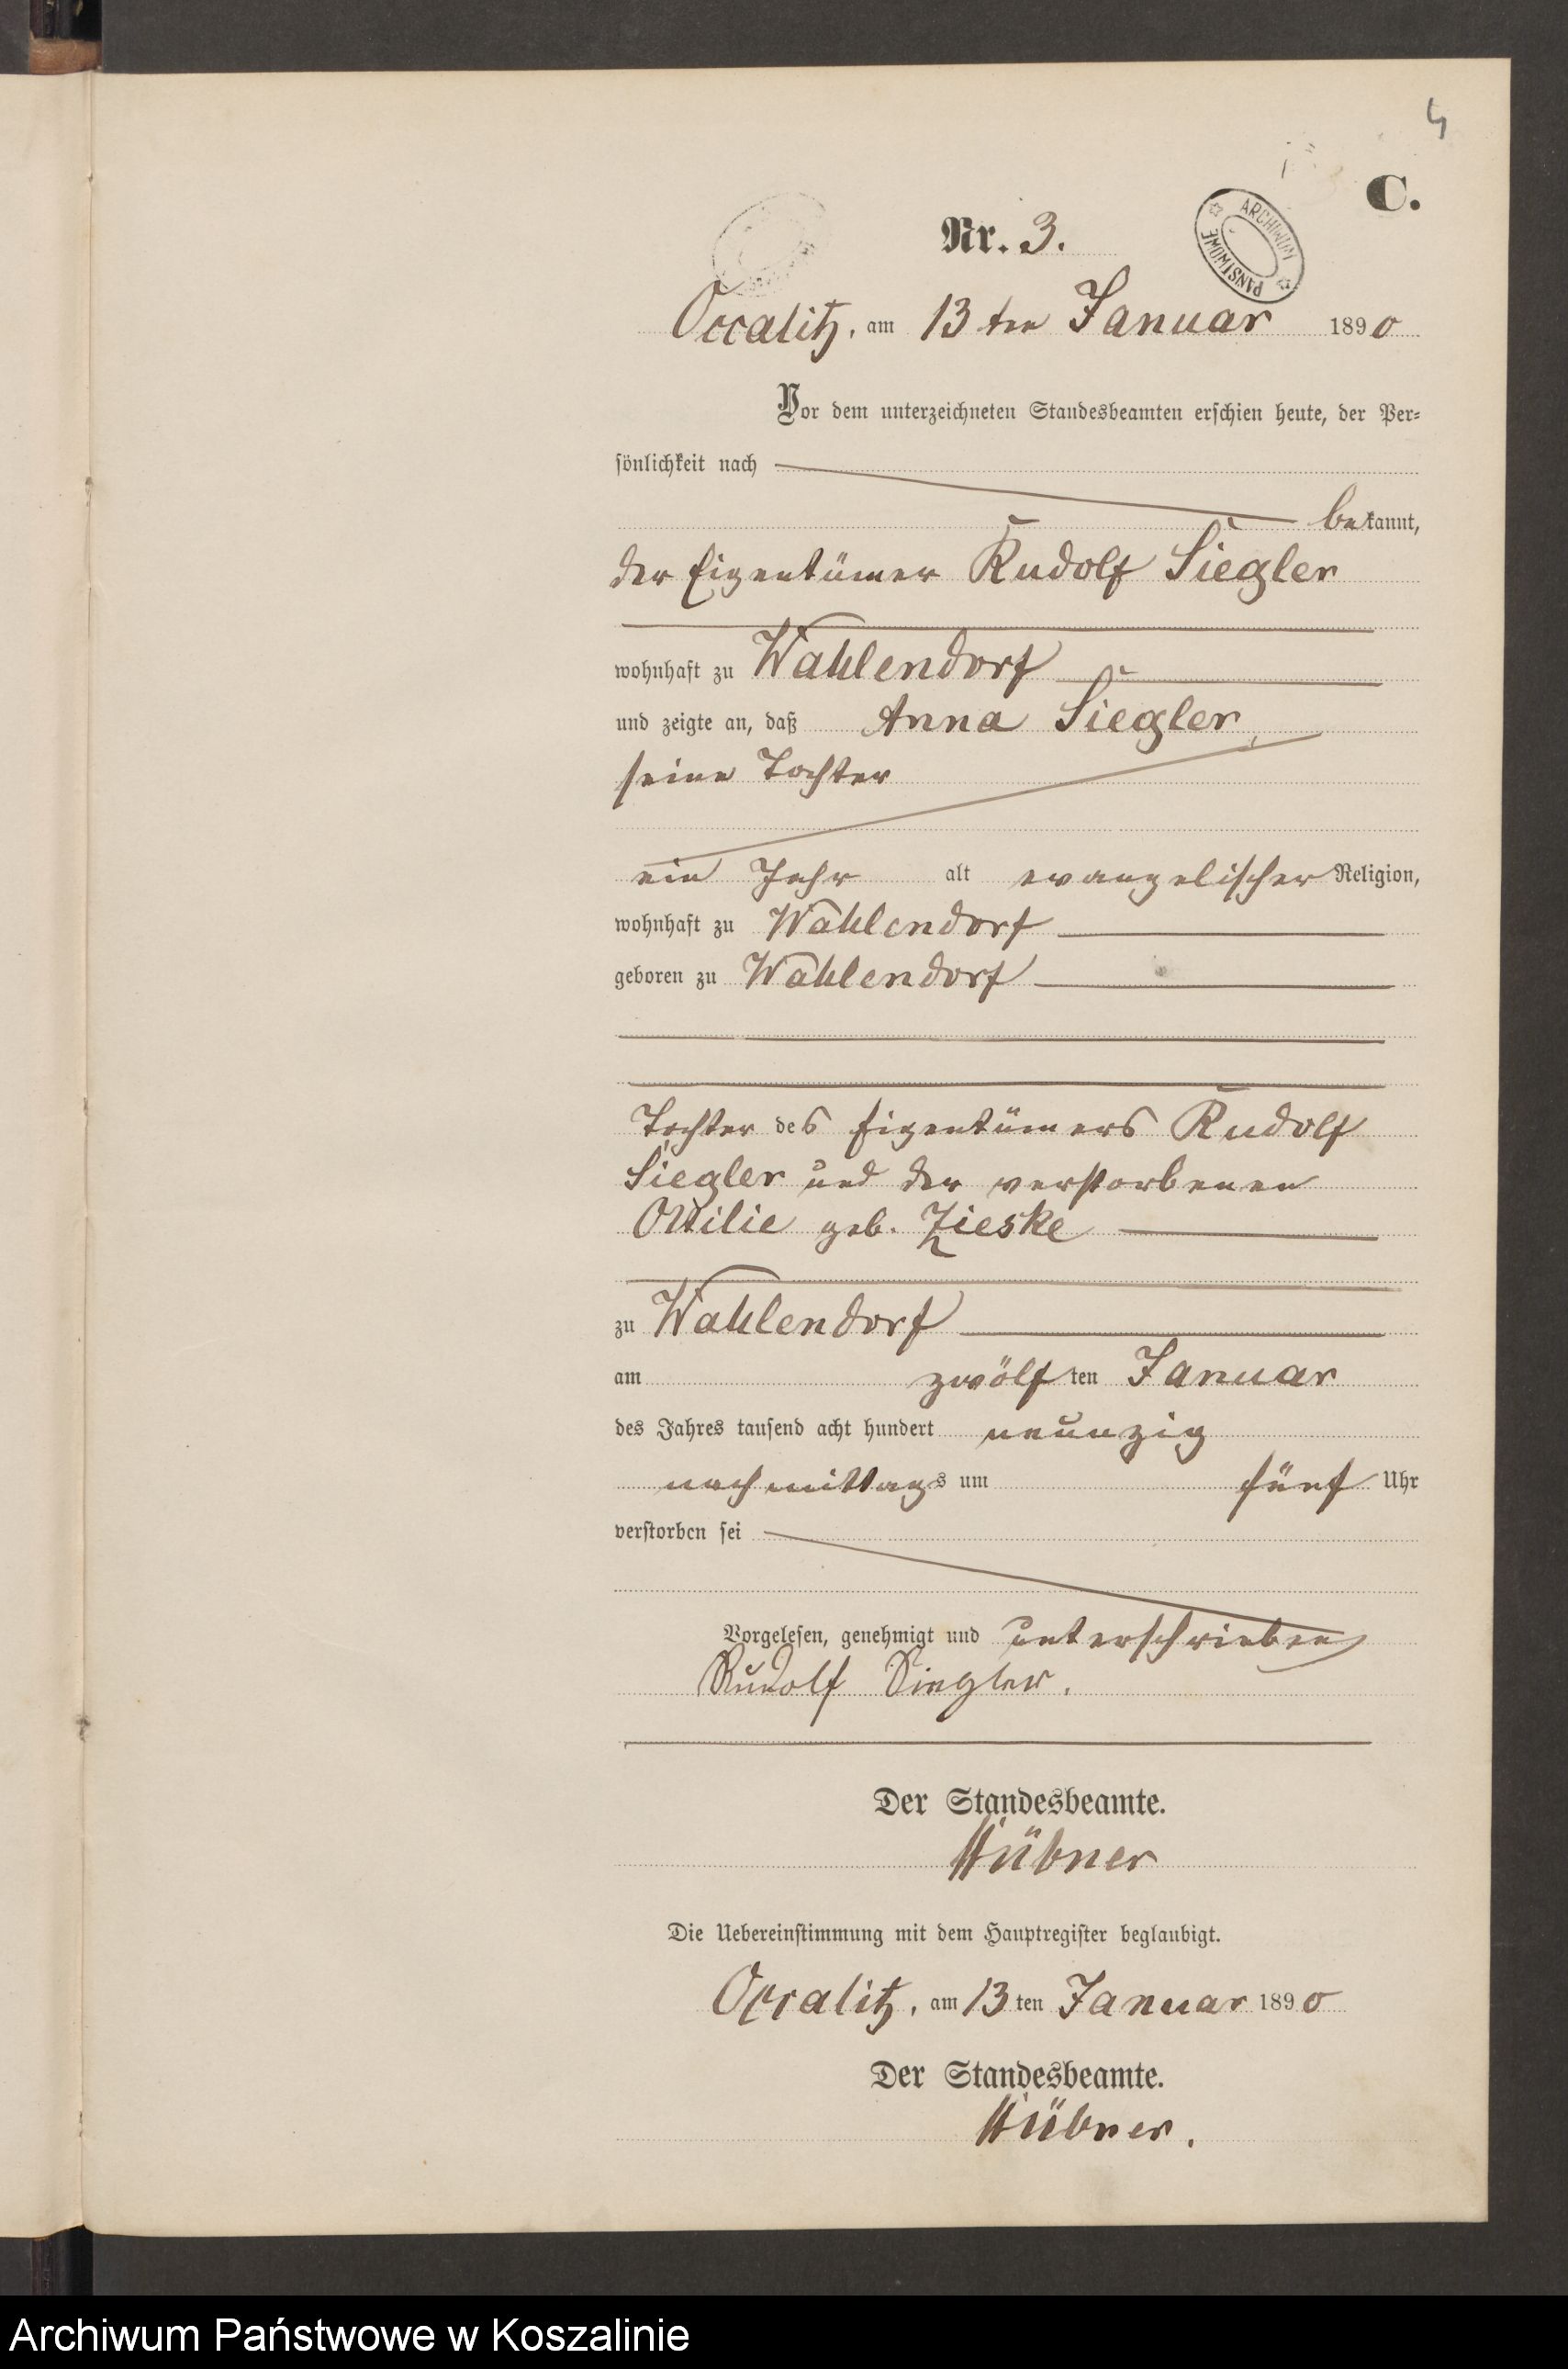 4
C.
ARCHIWUM PAŃSTWOWE
Nr. 3.
Occalitz, am 13ten Januar 1890
Vor dem unterzeichneten Standesbeamten erschien heute, der Per-
sönlichkeit nach
bekannt,
der Eigentümer Rudolf Siegler
wohnhaft zu Wahlendorf
und zeigte an, daß Anna Siegler,
seine Tochter
ein Jahr alt evangelischer Religion,
wohnhaft zu Wahlendorf
geboren zu Wahlendorf
Tochter des Eigentümers Rudolf
Siegler und der verstorbenen
Ottilie geb. Zieske
zu Wahlendorf
am zwölften Januar
des Jahres tausend acht hundert neunzig
nachmittags um fünf Uhr
verstorben sei
Vorgelesen, genehmigt und unterschrieben
Rudolf Siegler.
Der Standesbeamte.
Hübner
Die Uebereinstimmung mit dem Hauptregister beglaubigt.
Occalitz, am 13ten Januar 1890
Der Standesbeamte.
Hübner.
Archiwum Państwowe w Koszalinie